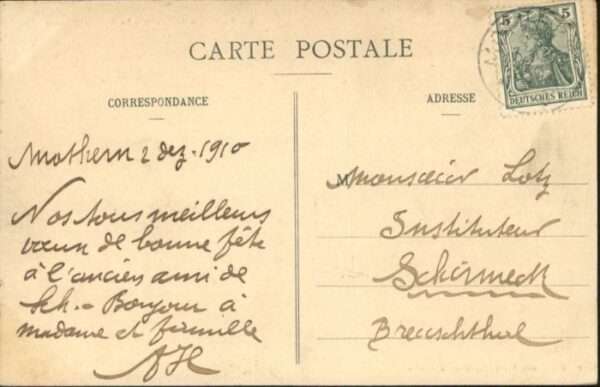 CARTE POSTALE
5 5
DEUTSCHES REICH
CORRESPONDANCE
Mothern 2 dez. 1910
Nos tous meilleurs
vœux de bonne fête
à l'ancien ami de
Sch. - Bonjour à
madame et famille
AH
ADRESSE
Monsieur Lotz
Instituteur
Schirmeck
Breuschthal